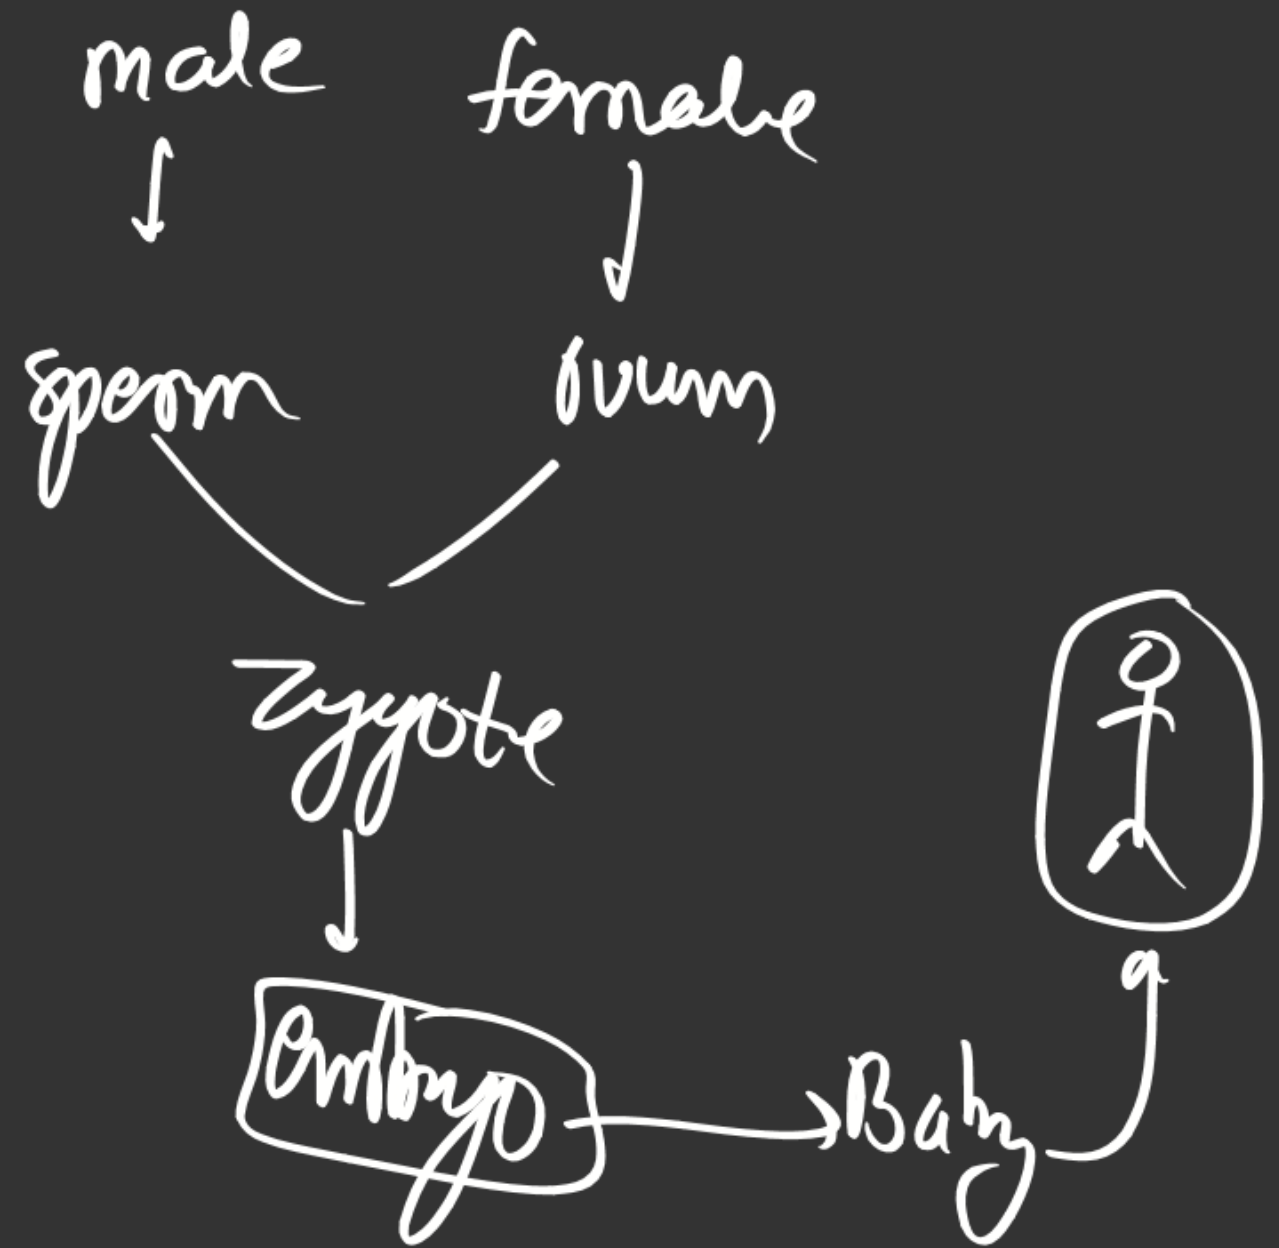 male female
sperm ovum
zygote
embryo
Baby